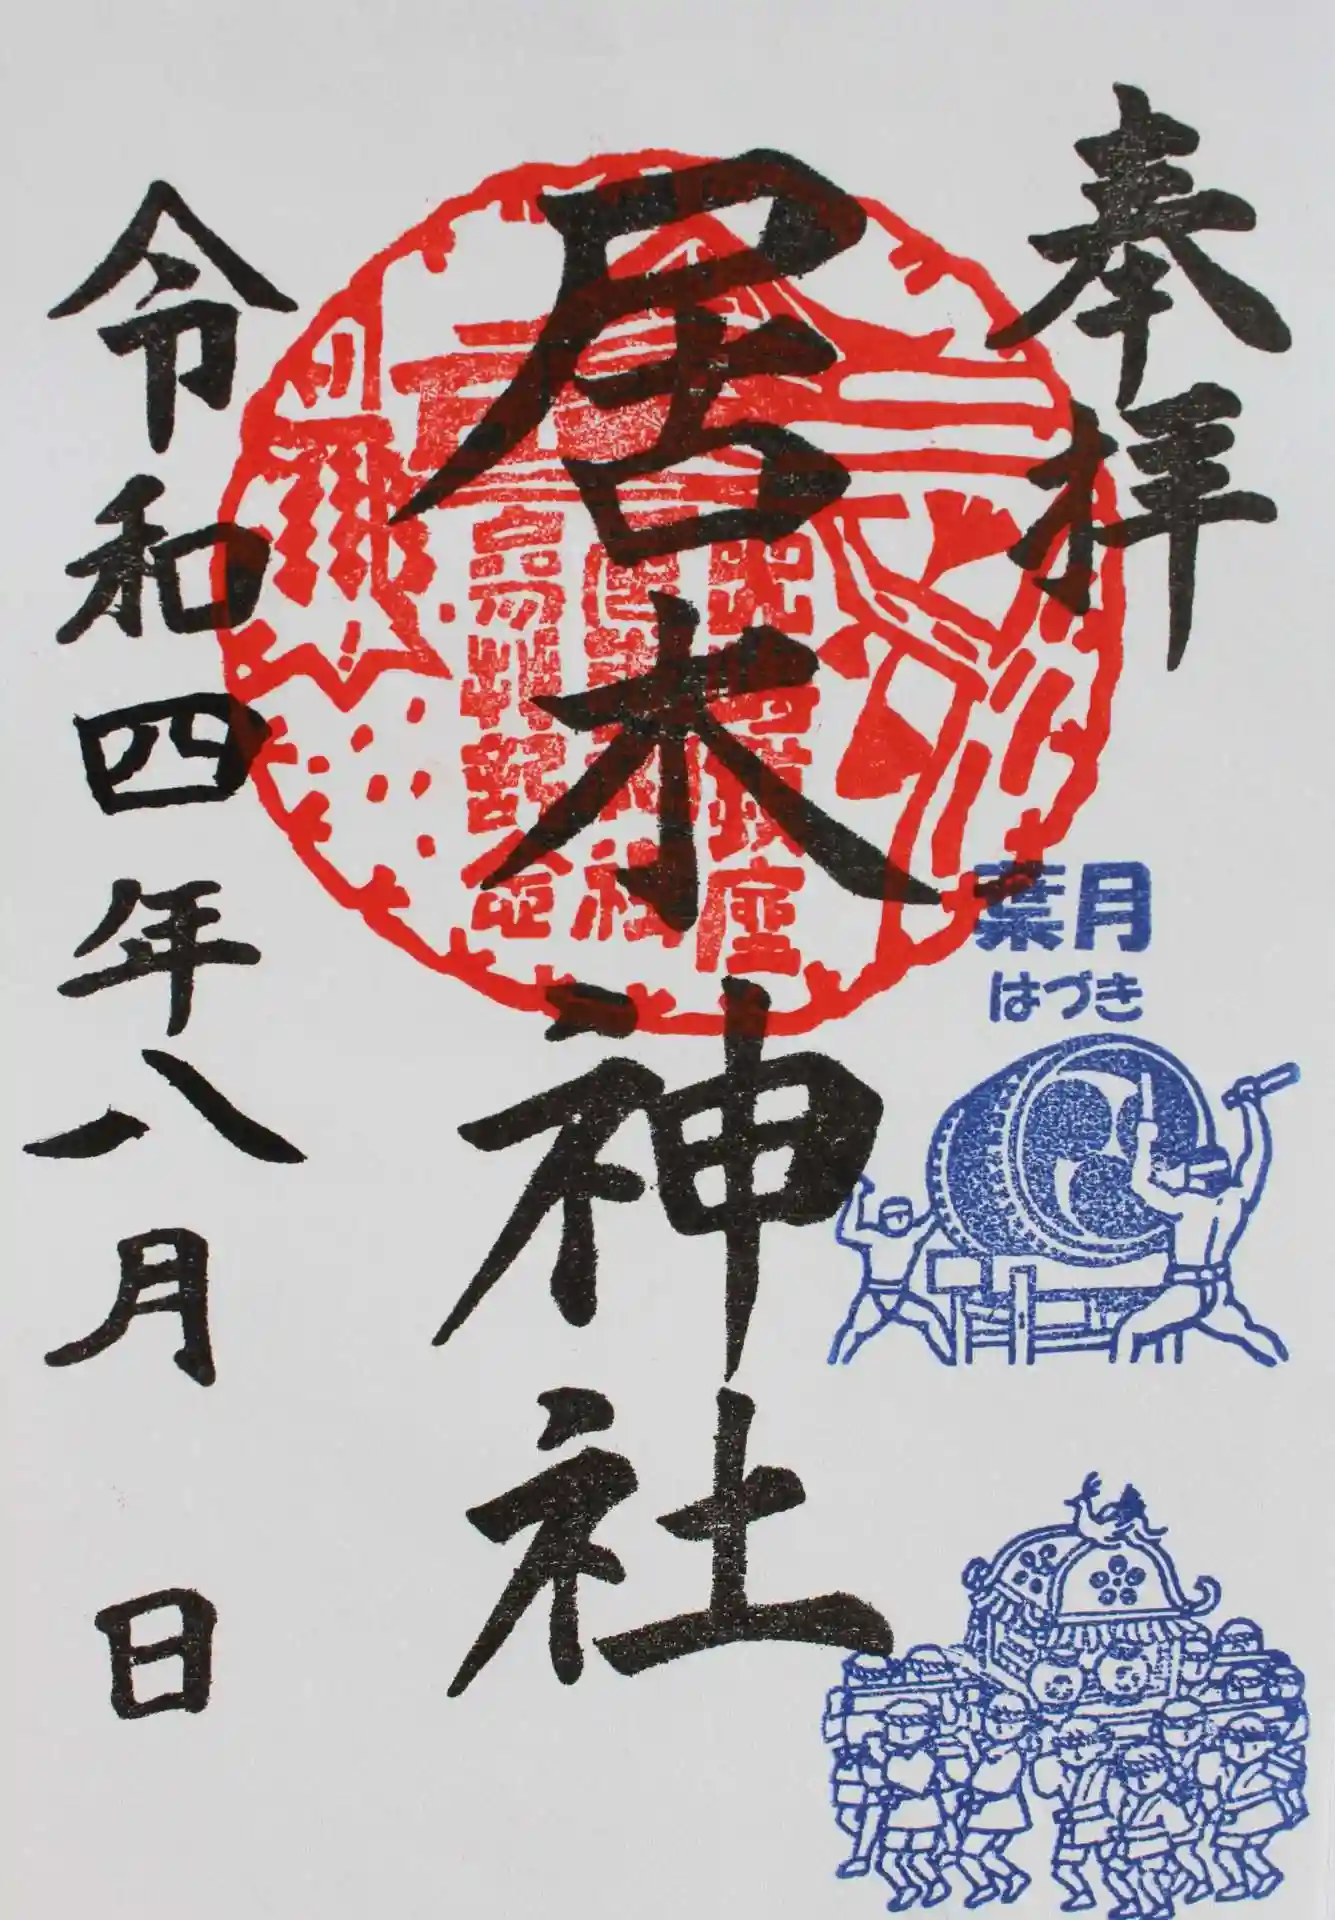 奉拝
葉月
はづき
居木神社
令和四年八月 日